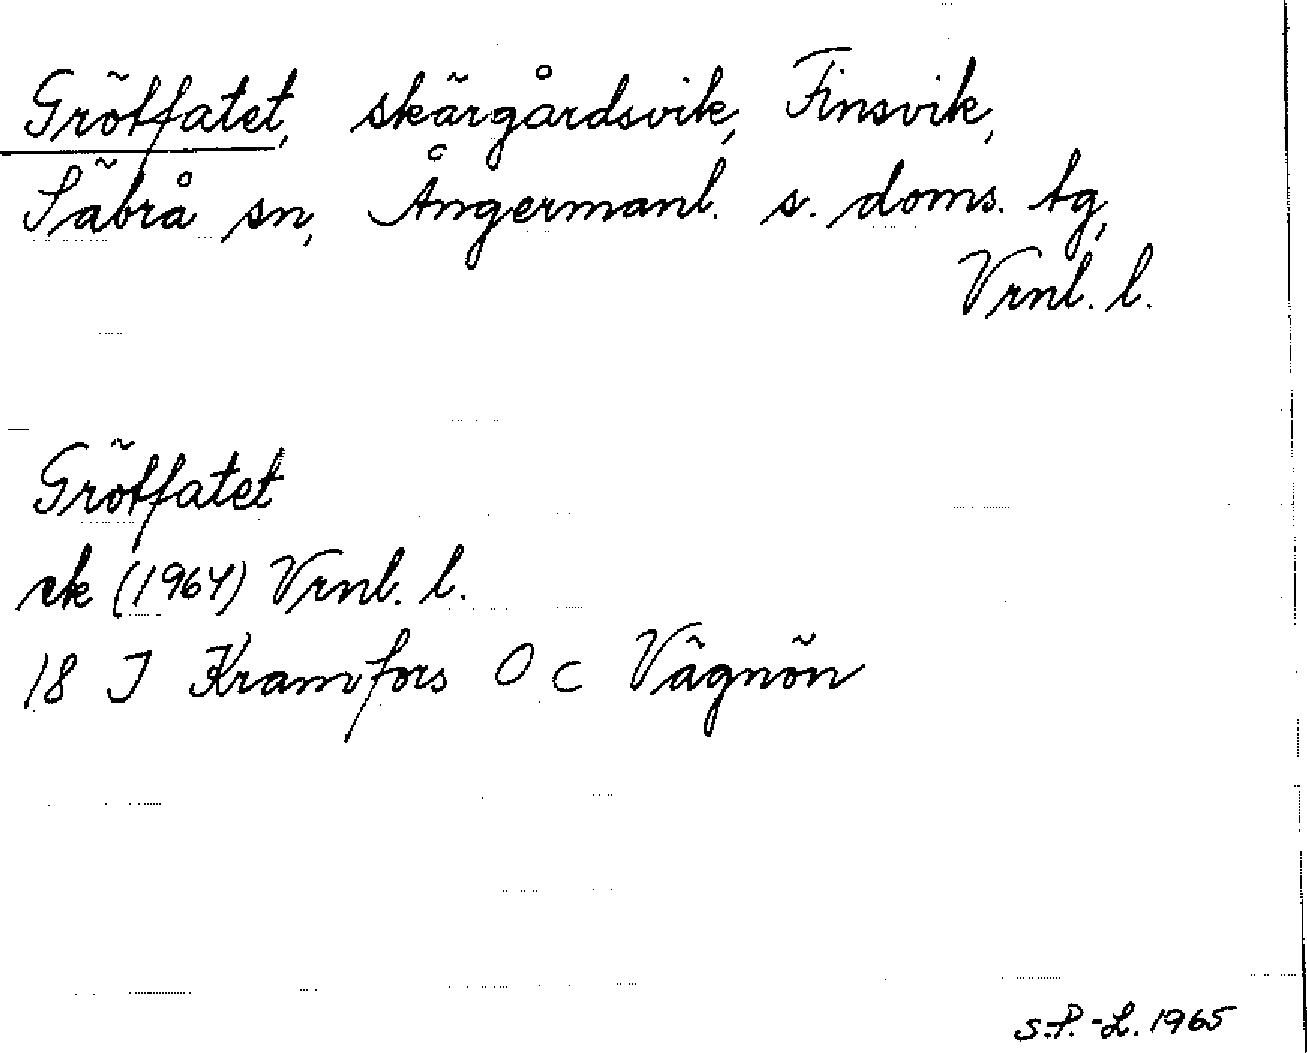 Grötfatet, skärgårdsvik, Finsvik,
Säbrå sn, Ångermanl. s. doms. tg,
Vrnl. l.
Grötfatet
ek (1964) Vrnl. l.
18 J Kramfors O c Vägnön
S.P.-L. 1965